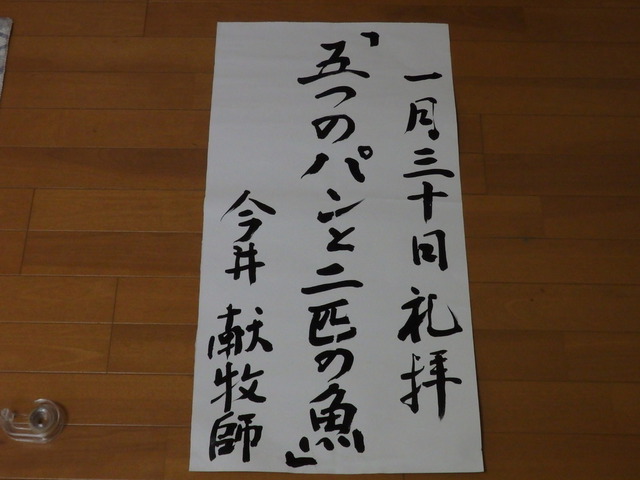 一月三十日礼拝
「五つのパンと二匹の魚」
今井献牧師